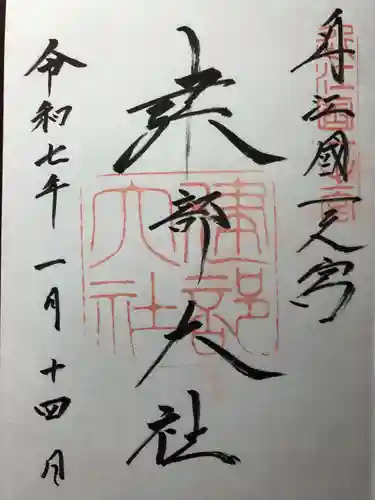 近江國一之宮
建部大社
令和七年一月十四日
建部大社